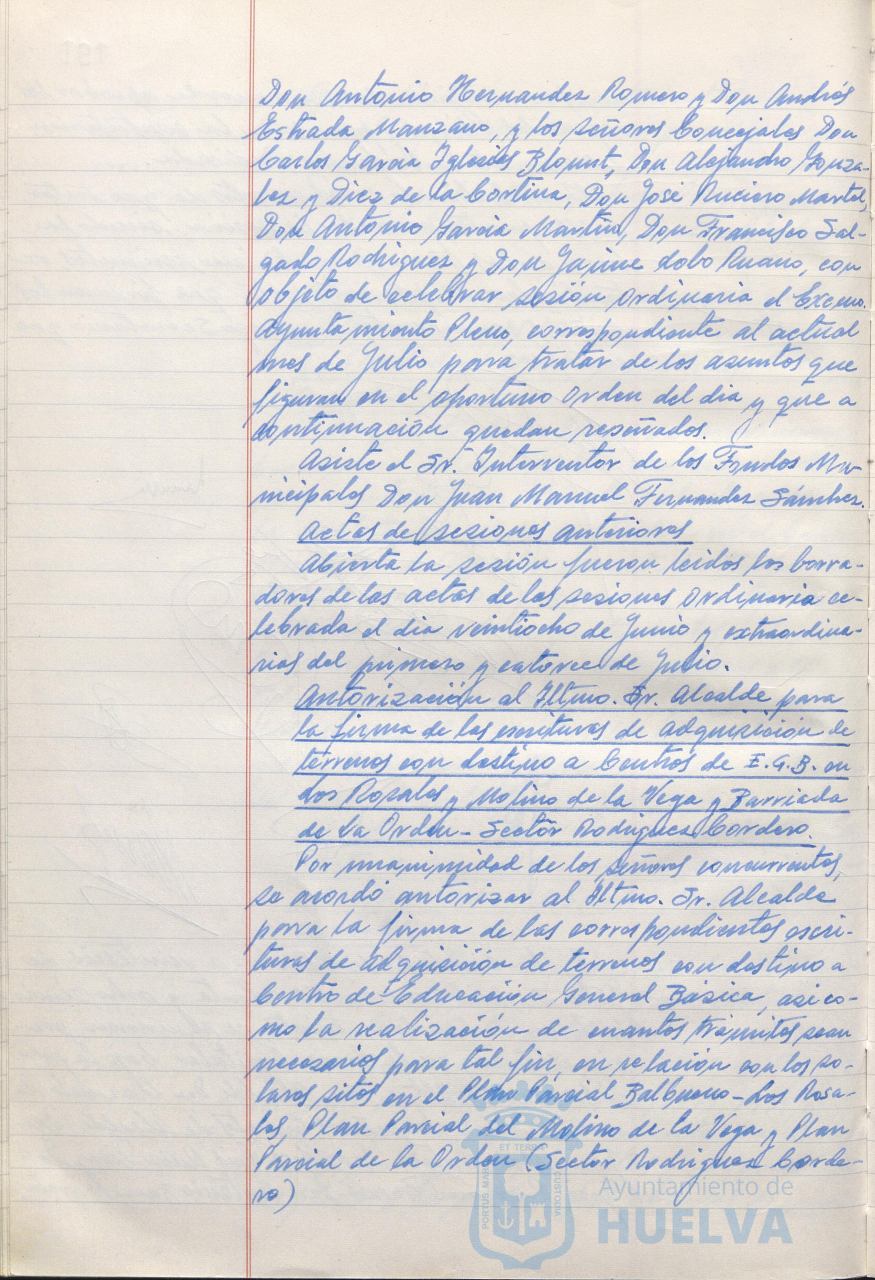 Don Antonio Hernandez Romero y Don Andrés
Estrada Manzano, y los señores Concejales Don
Carlos García Iglesias Blount, Don Alejandro Gonza-
lez y Diez de la Cortina, Don José Ruciero Martel,
Don Antonio García Martín, Don Francisco Sal-
gado Rodriguez y Don Jaime Lobo Ruano, con
objeto de celebrar sesión ordinaria el Excmo.
Ayuntamiento Pleno, correspondiente al actual
mes de Julio para tratar de los asuntos que
figuran en el oportuno orden del dia y que a
continuación quedan reseñados.
Asiste el Sr. Interventor de los Fondos Mu-
nicipales Don Juan Manuel Fernandez Sánchez.
Actas de sesiones anteriores
Abierta la sesión fueron leidos los borra-
dores de las actas de las sesiones ordinaria ce-
lebrada el dia veintiocho de Junio y extraordina-
rias del primero y catorce de Julio.
Autorización al Iltmo. Sr. Alcalde para
la firma de las escrituras de adquisición de
terrenos con destino a Centros de E.G.B. en
Los Rosales y Molino de la Vega y Barriada
de la Orden - Sector Rodriguez Cordero.
Por unanimidad de los señores concurrentes,
se acordó autorizar al Iltmo. Sr. Alcalde
para la firma de las correspondientes escri-
turas de adquisición de terrenos con destino a
Centro de Educación General Básica, asi co-
mo la realización de cuantos trámites sean
necesarios para tal fin, en relación con los so-
lares sitos en el Plan Parcial Balbueno - Los Rosa-
les, Plan Parcial del Molino de la Vega y Plan
Parcial de la Orden (Sector Rodriguez Corde-
ro)
PORTUS MARIS
ET TERRAE
CUSTODIA
Ayuntamiento de
HUELVA